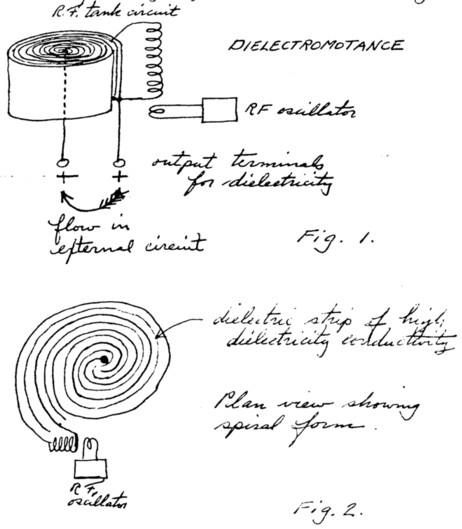 R.F. tank circuit
DIELECTROMOTANCE
RF oscillator
output terminals
for dielectricity
+ +
flow in
external circuit
Fig. 1.
dielectric strip of high
dielectricity conductivity
Plan view showing
spiral form.
R.F.
oscillator
Fig. 2.